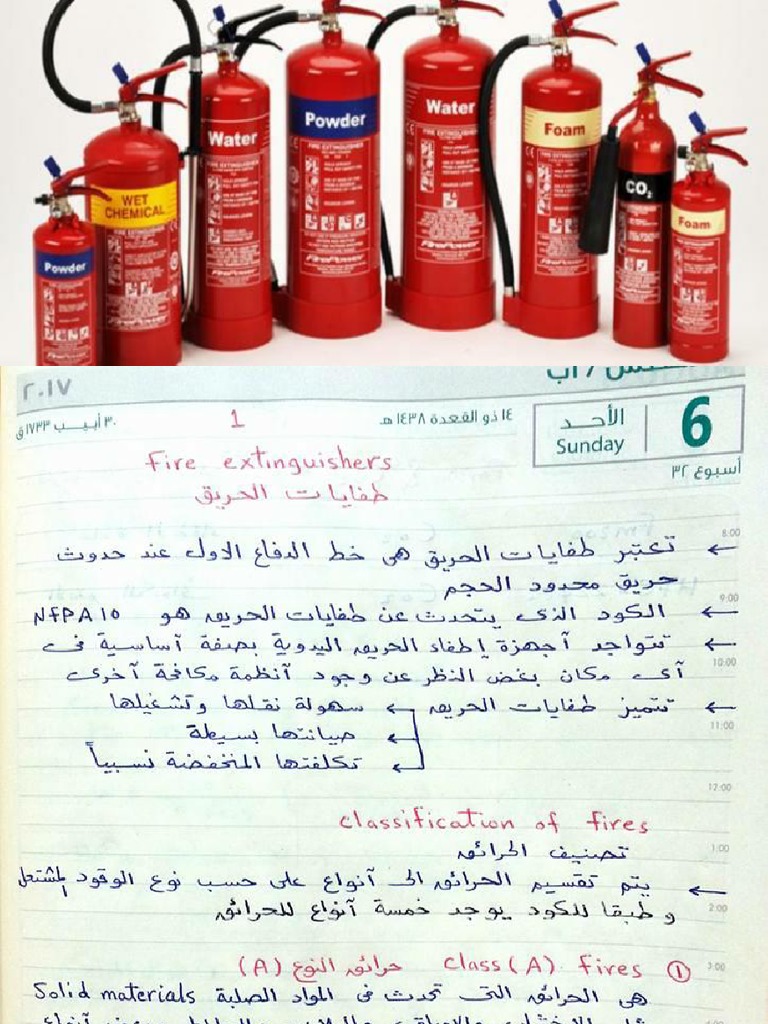 WET
CHEMICAL
Powder
Water
Powder
Water
Foam
CO₂
Foam
FIRE EXTINGUISHER
٢٠١٧
٣٠ أبيب ١٧٣٣ ق
1
١٤ ذو القعدة ١٤٣٨ هـ
الأحد
Sunday
6
أسبوع ٣٢
Fire extinguishers
طفايات الحريق
8:00
← تعتبر طفايات الحريق هى خط الدفاع الاول عند حدوث
حريق محدود الحجم
9:00
← الكود الذى يتحدث عن طفايات الحريق هو NFPA 10
← تتواجد أجهزة إطفاء الحريق اليدوية بصفة أساسية فى
10:00
أى مكان بغض النظر عن وجود أنظمة مكافحة أخرى
← تتميز طفايات الحريق ← سهولة نقلها وتشغيلها
11:00
← صيانتها بسيطة
← تكلفتها المنخفضة نسبياً
12:00
classification of fires
تصنيف الحرائق
1:00
← يتم تقسيم الحرائق الى أنواع على حسب نوع الوقود المشتعل
2:00
و طبقا للكود يوجد خمسة أنواع للحرائق
3:00
① class (A) fires حرائق النوع (A)
هى الحرائق التى تحدث فى المواد الصلبة Solid materials